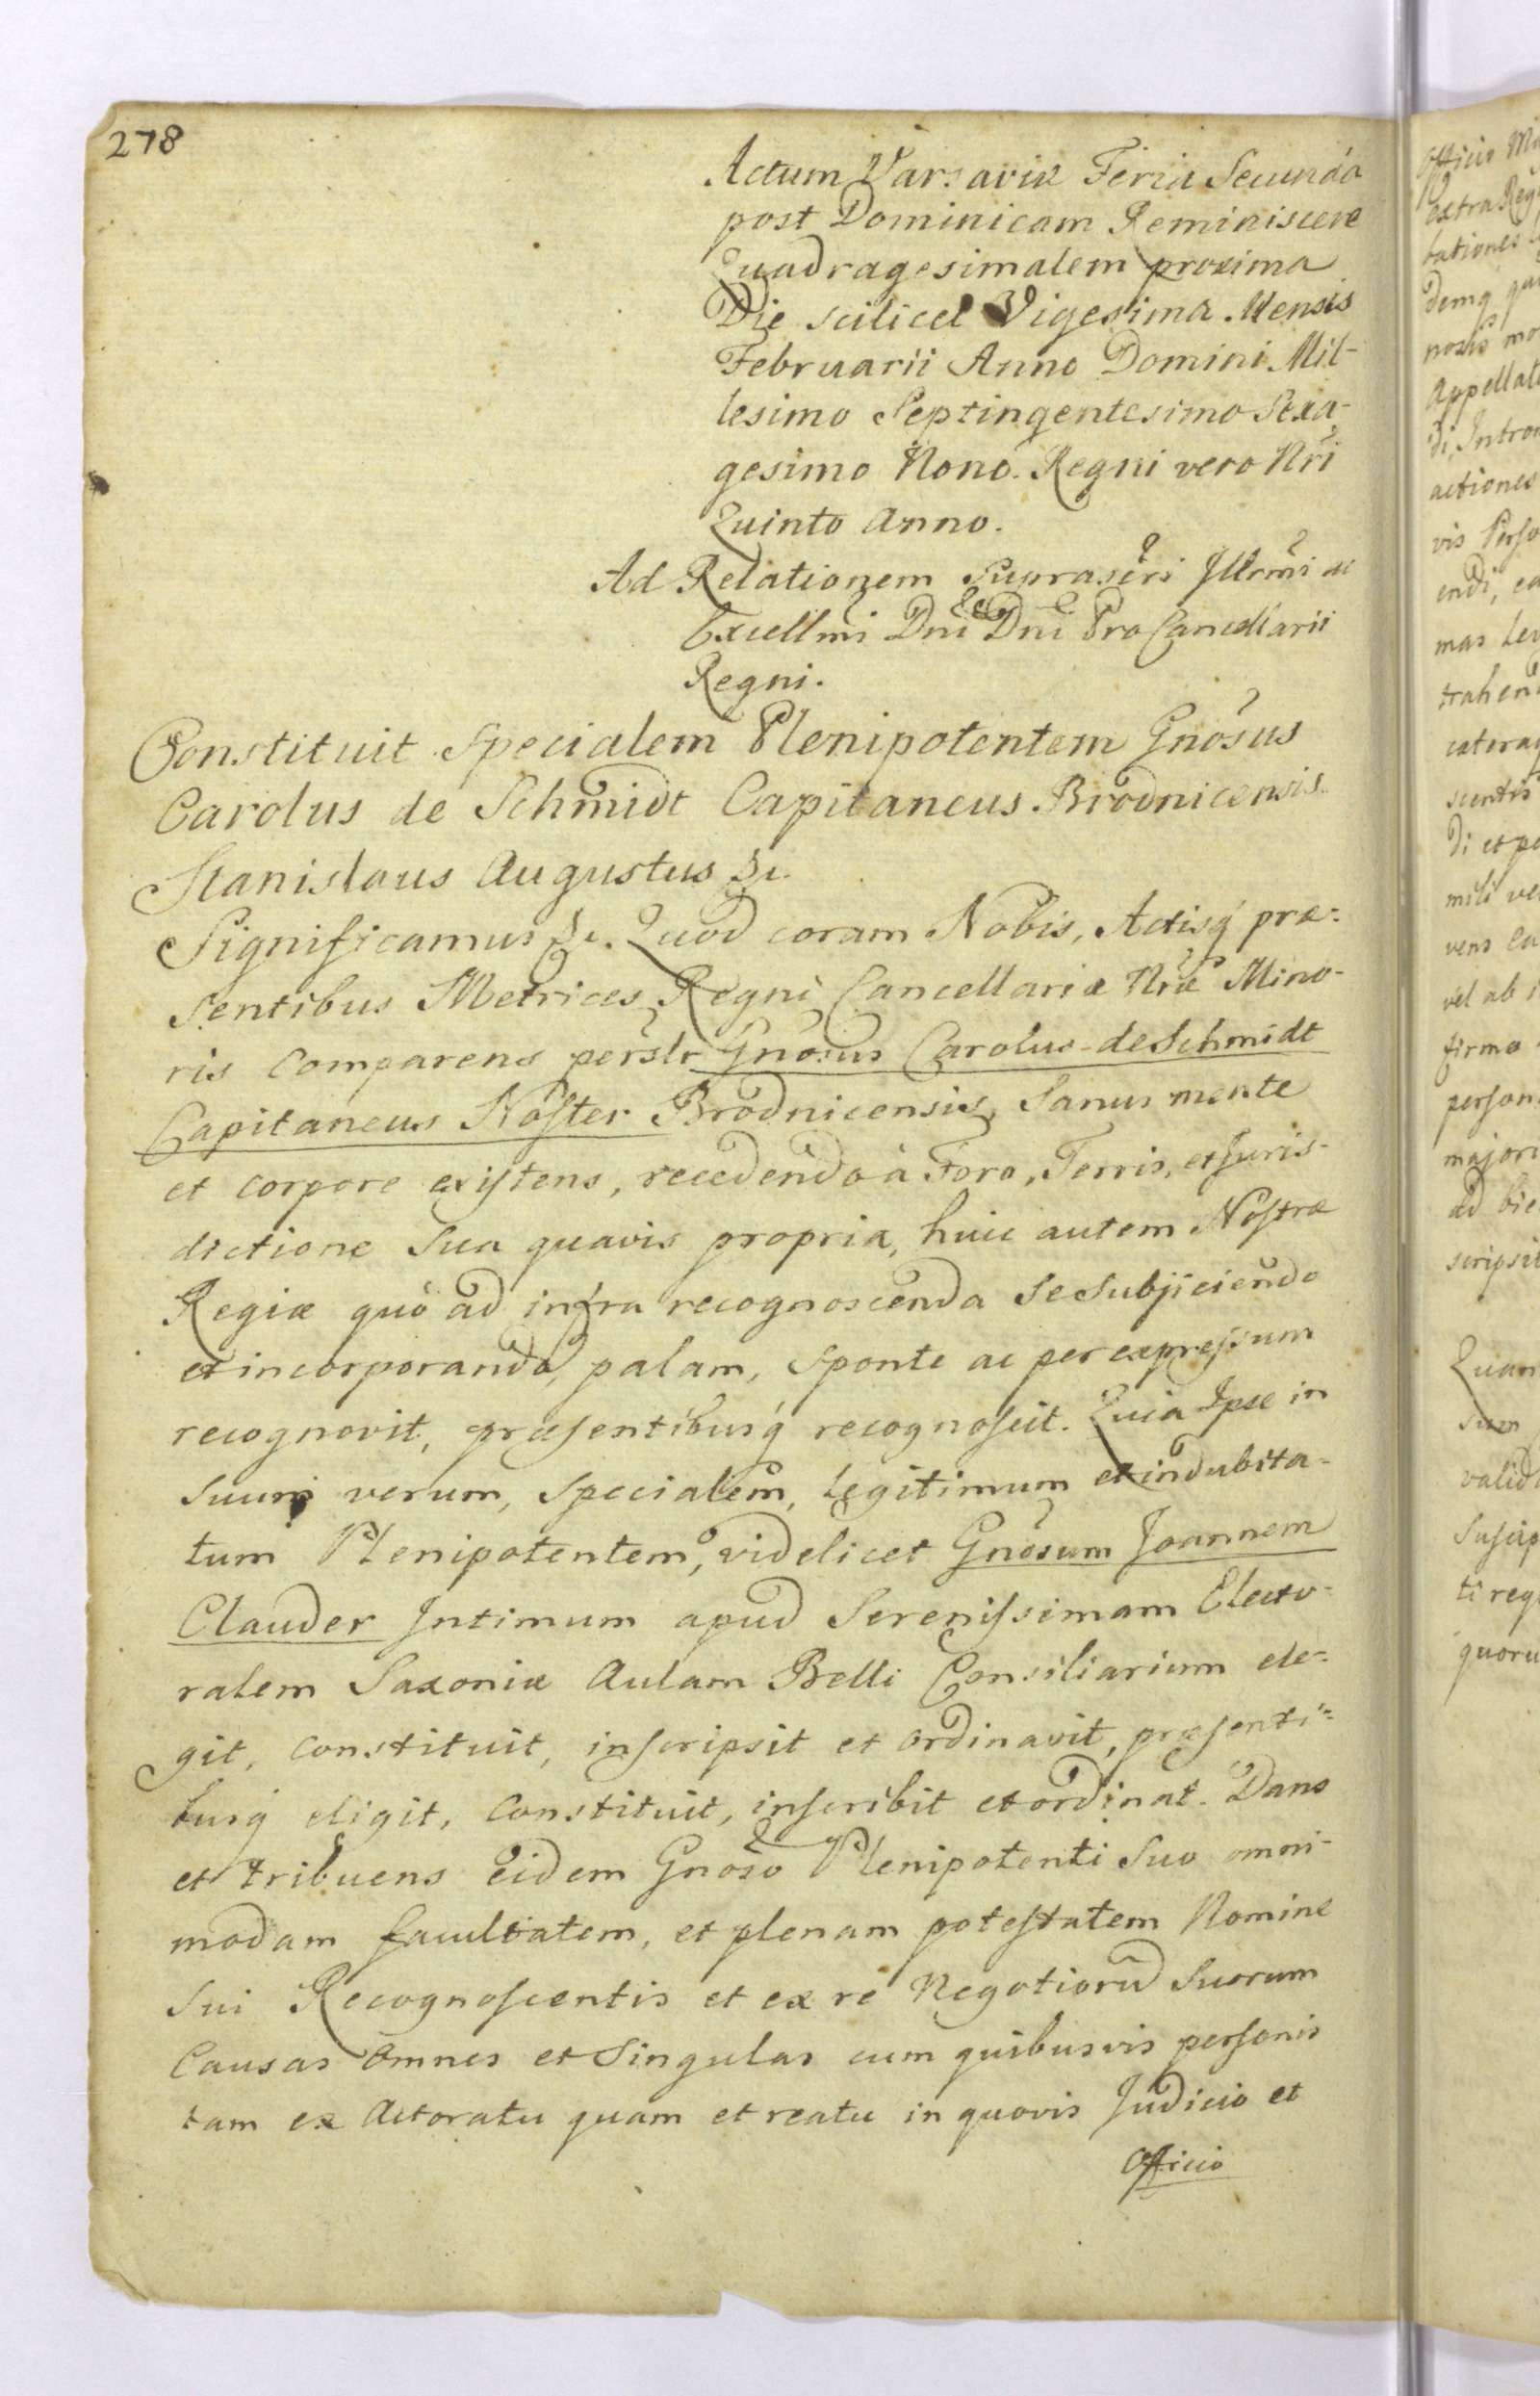 278
Actum Varsaviæ Feria Secunda
post Dominicam Reminiscere
Quadragesimalem proxima
Die scilicet Vigesima Mensis
Februarii Anno Domini Mil-
lesimo Septingentesimo Sexa-
gesimo Nono. Regni vero Nri
Quinto Anno.
Ad Relationem Suprascri Illrmi ac
Excellmi Dni Dni Pro Cancellarii
Regni.
Constituit Specialem Plenipotentem Gnosus
Carolus de Schmidt Capitaneus Brodnicensis.
Stanislaus Augustus &c.
Significamus &c. Quod coram Nobis, Actisq præ-
sentibus Metrices Regni Cancellariæ Nræ Mino-
ris Comparens perslr Gnosus Carolus de Schmidt
Capitaneus Noster Brodnicensis, Sanus mente
et corpore existens, recedendo à Foro, Terris, et Juris-
dictione Sua quavis propria, huic autem Nostræ
Regiæ quò ad infra recognoscenda se Subjiciendo
et incorporando, palam, sponte ac per expressum
recognovit, præsentibusq recognoscit. Quia Ipse in
suum verum, Specialem, Legitimum et indubita-
tum Plenipotentem, videlicet Gnosum Joannem
Clauder Intimum apud Serenissimam Electo-
ralem Saxoniæ Aulam Belli Consiliarium ele-
git, Constituit, inscripsit et ordinavit, præsenti-
busq eligit, Constituit, inscribit et ordinat. Dans
et tribuens Eidem Gnoso Plenipotenti Suo omni-
modam facultatem, et plenam potestatem Nomine
Sui Recognoscentis et ex re Negotioru Suorum
Causas omnes et Singulas cum quibusvis personis
tam ex Actoratu quam et reatu in quovis Judicio et
Officio